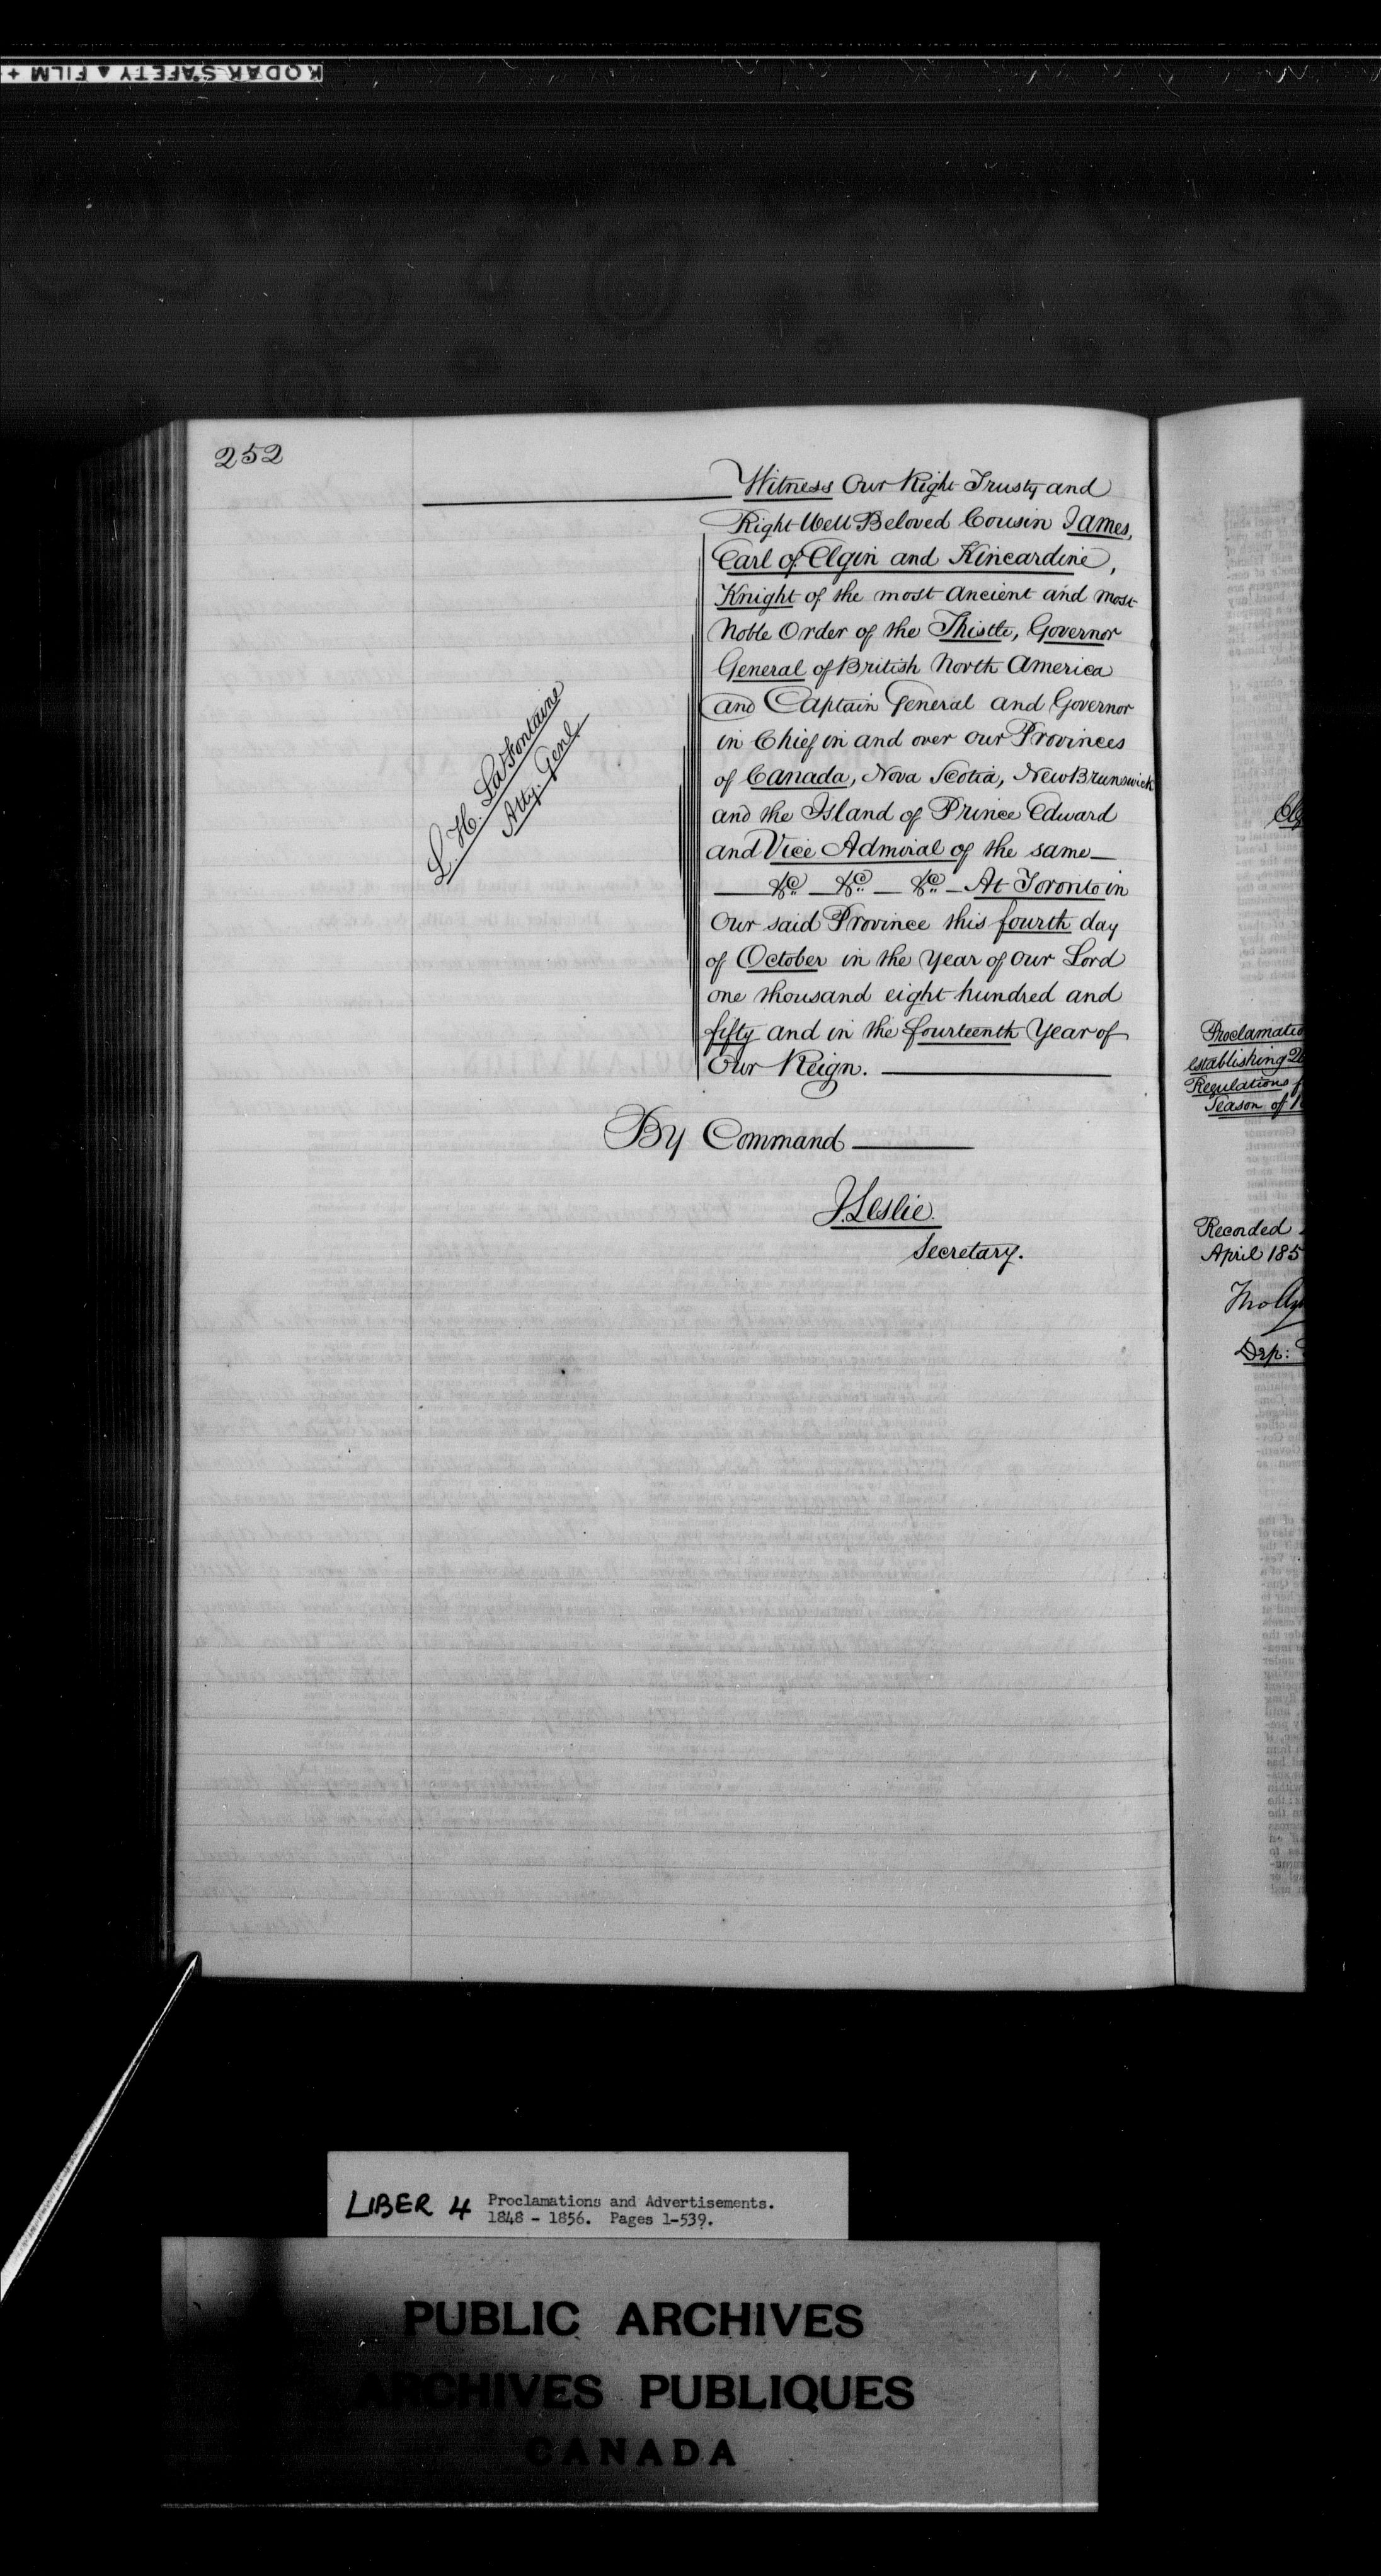 KODAK SAFETY ▲ FILM +
252
Witness Our Right Trusty and
Right Well Beloved Cousin James,
Earl of Elgin and Kincardine,
Knight of the most Ancient and most
Noble Order of the Thistle, Governor
General of British North America
and Captain General and Governor
in Chief in and over our Provinces
of Canada, Nova Scotia, New Brunswick
and the Island of Prince Edward
and Vice Admiral of the same —
— &c. — &c. — &c. — At Toronto in
Our said Province this fourth day
of October in the Year of Our Lord
one thousand eight hundred and
fifty and in the fourteenth Year of
Our Reign.
L. H. LaFontaine
Atty. Genl.
By Command
J. Leslie.
Secretary.
Proclamatio
establishing
Regulations
Season of
Recorded
April 185
Dep:
LIBER 4 Proclamations and Advertisements.
1848 - 1856. Pages 1-539.
PUBLIC ARCHIVES
ARCHIVES PUBLIQUES
CANADA